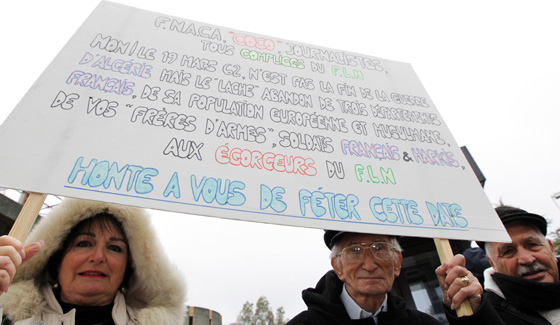 F.NACA, "COCO", JOURNALISTES,
TOUS COMPLICES DU F.L.N
NON! LE 19 MARS 62, N'EST PAS LA FIN DE LA GUERRE
D'ALGÉRIE MAIS LE "LÂCHE" ABANDON DE TROIS DÉPARTEMENTS
FRANÇAIS, DE SA POPULATION EUROPÉENNE ET MUSULMANE,
DE VOS "FRÈRES D'ARMES", SOLDATS FRANÇAIS & HARKIS,
AUX ÉGORGEURS DU F.L.N
HONTE A VOUS DE FÊTER CETTE DATE